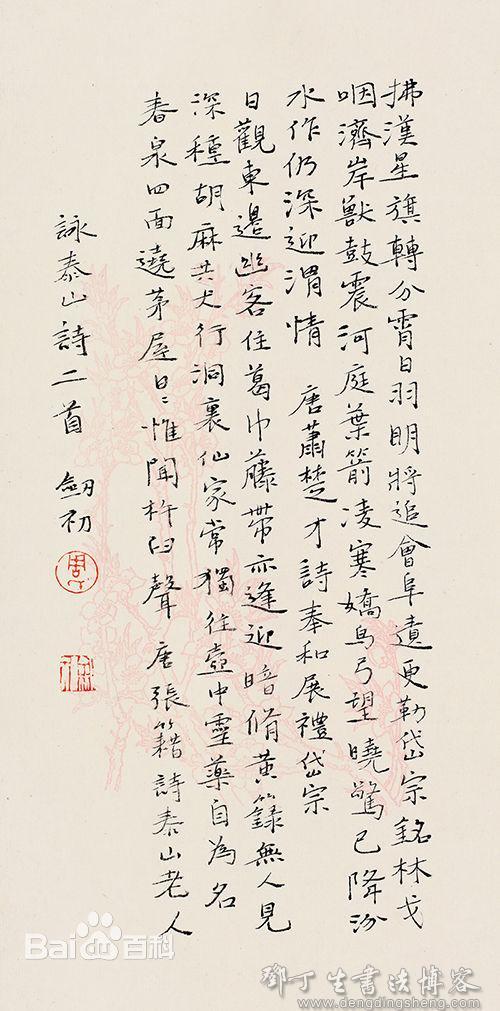 拂漢星旗轉分霄日羽明將追會阜遺更勒岱宗銘林戈
咽濟岸獸鼓震河庭葉箭凌寒嬌烏弓望曉驚已降汾
水作仍深迎渭情 唐蕭楚才詩奉和展禮岱宗
日觀東邊幽客住葛巾藤帶亦逢迎暗脩黄籙無人見
深種胡麻共犬行洞裏仙家常獨往壺中靈藥自為名
春泉四面遶茅屋日〻惟聞杵臼聲 唐張籍詩泰山老人
詠泰山詩二首 劒初
周
Bai百科
鄧丁生書法博客
www.dengdingsheng.com